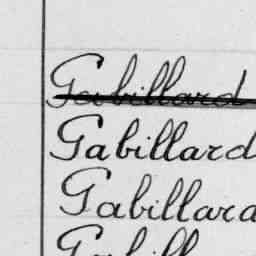 Gabillard
Gabillard
Gabillard
Gabill